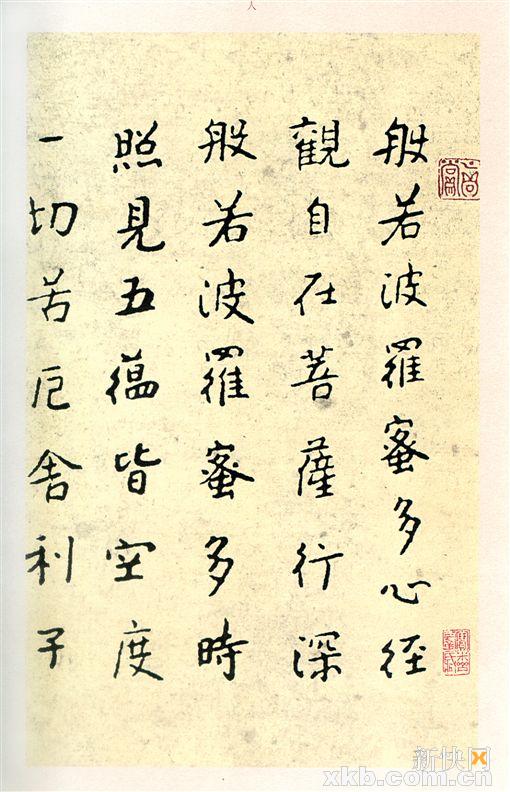 般若波羅蜜多心经
觀自在菩薩行深
般若波羅蜜多時
照見五蘊皆空度
一切苦厄舍利子
人
新快网
xkb.com.cn